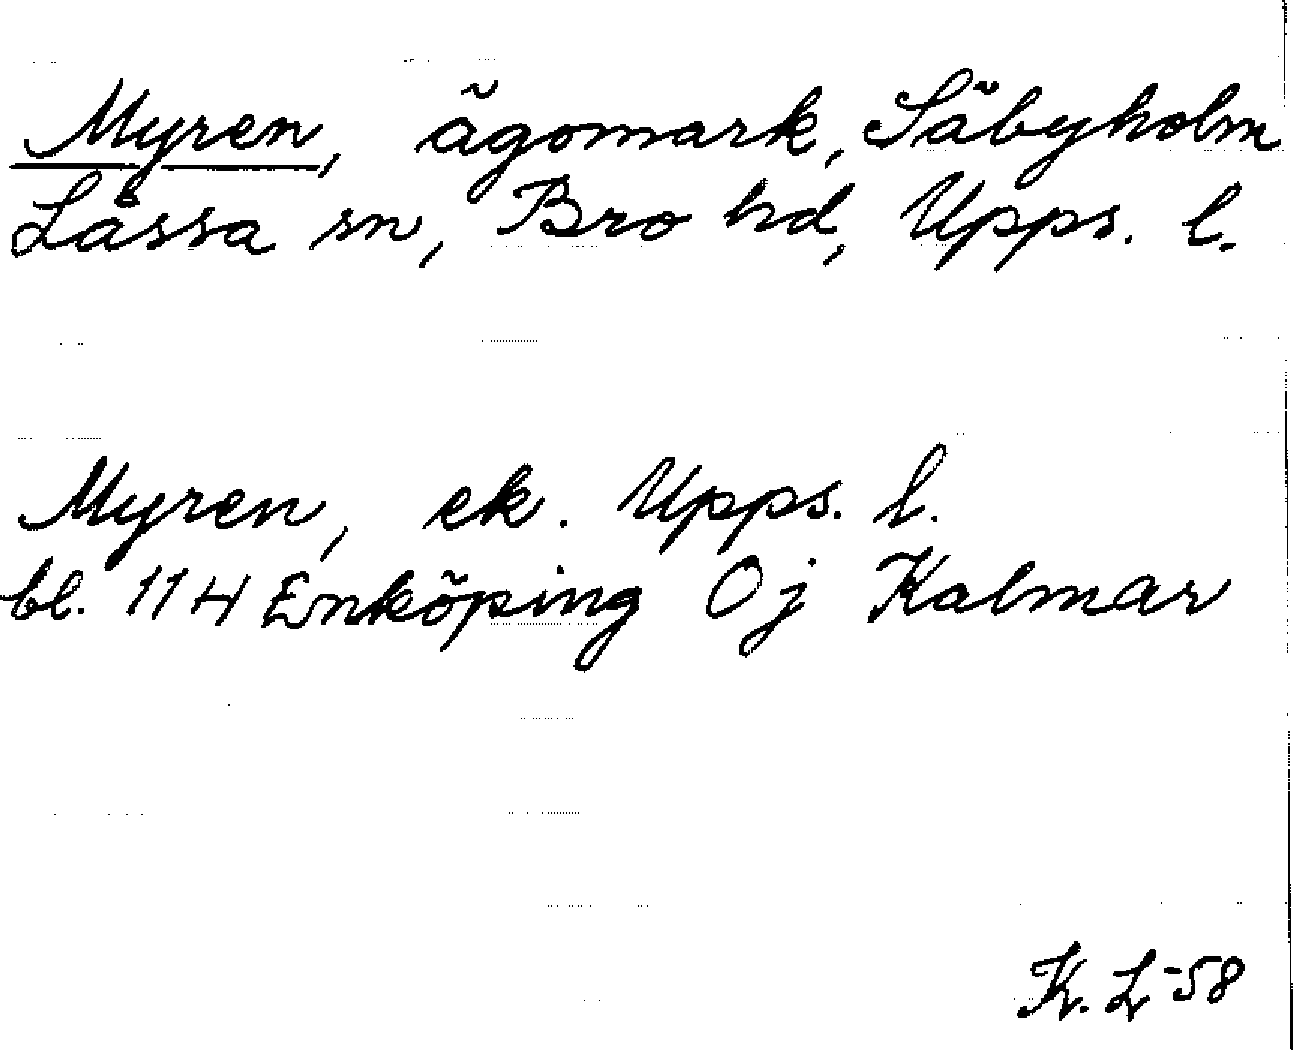 Myren, ägomark, Säbyholm
Låssa sn, Bro hd, Upps. l.
Myren, ek. Upps. l.
bl. 114 Enköping Oj Kalmar
K. L-58